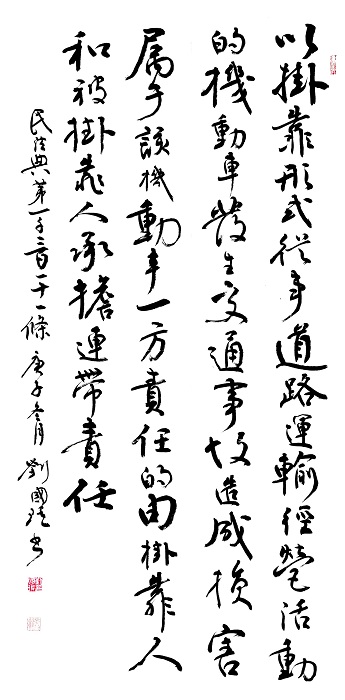 以掛靠形式從事道路運輸經營活動
的機動車發生交通事故造成損害
属于該機動車一方責任的由掛靠人
和被掛靠人承擔連帶責任
民法典第一千二百一十一條 庚子冬月 劉國書